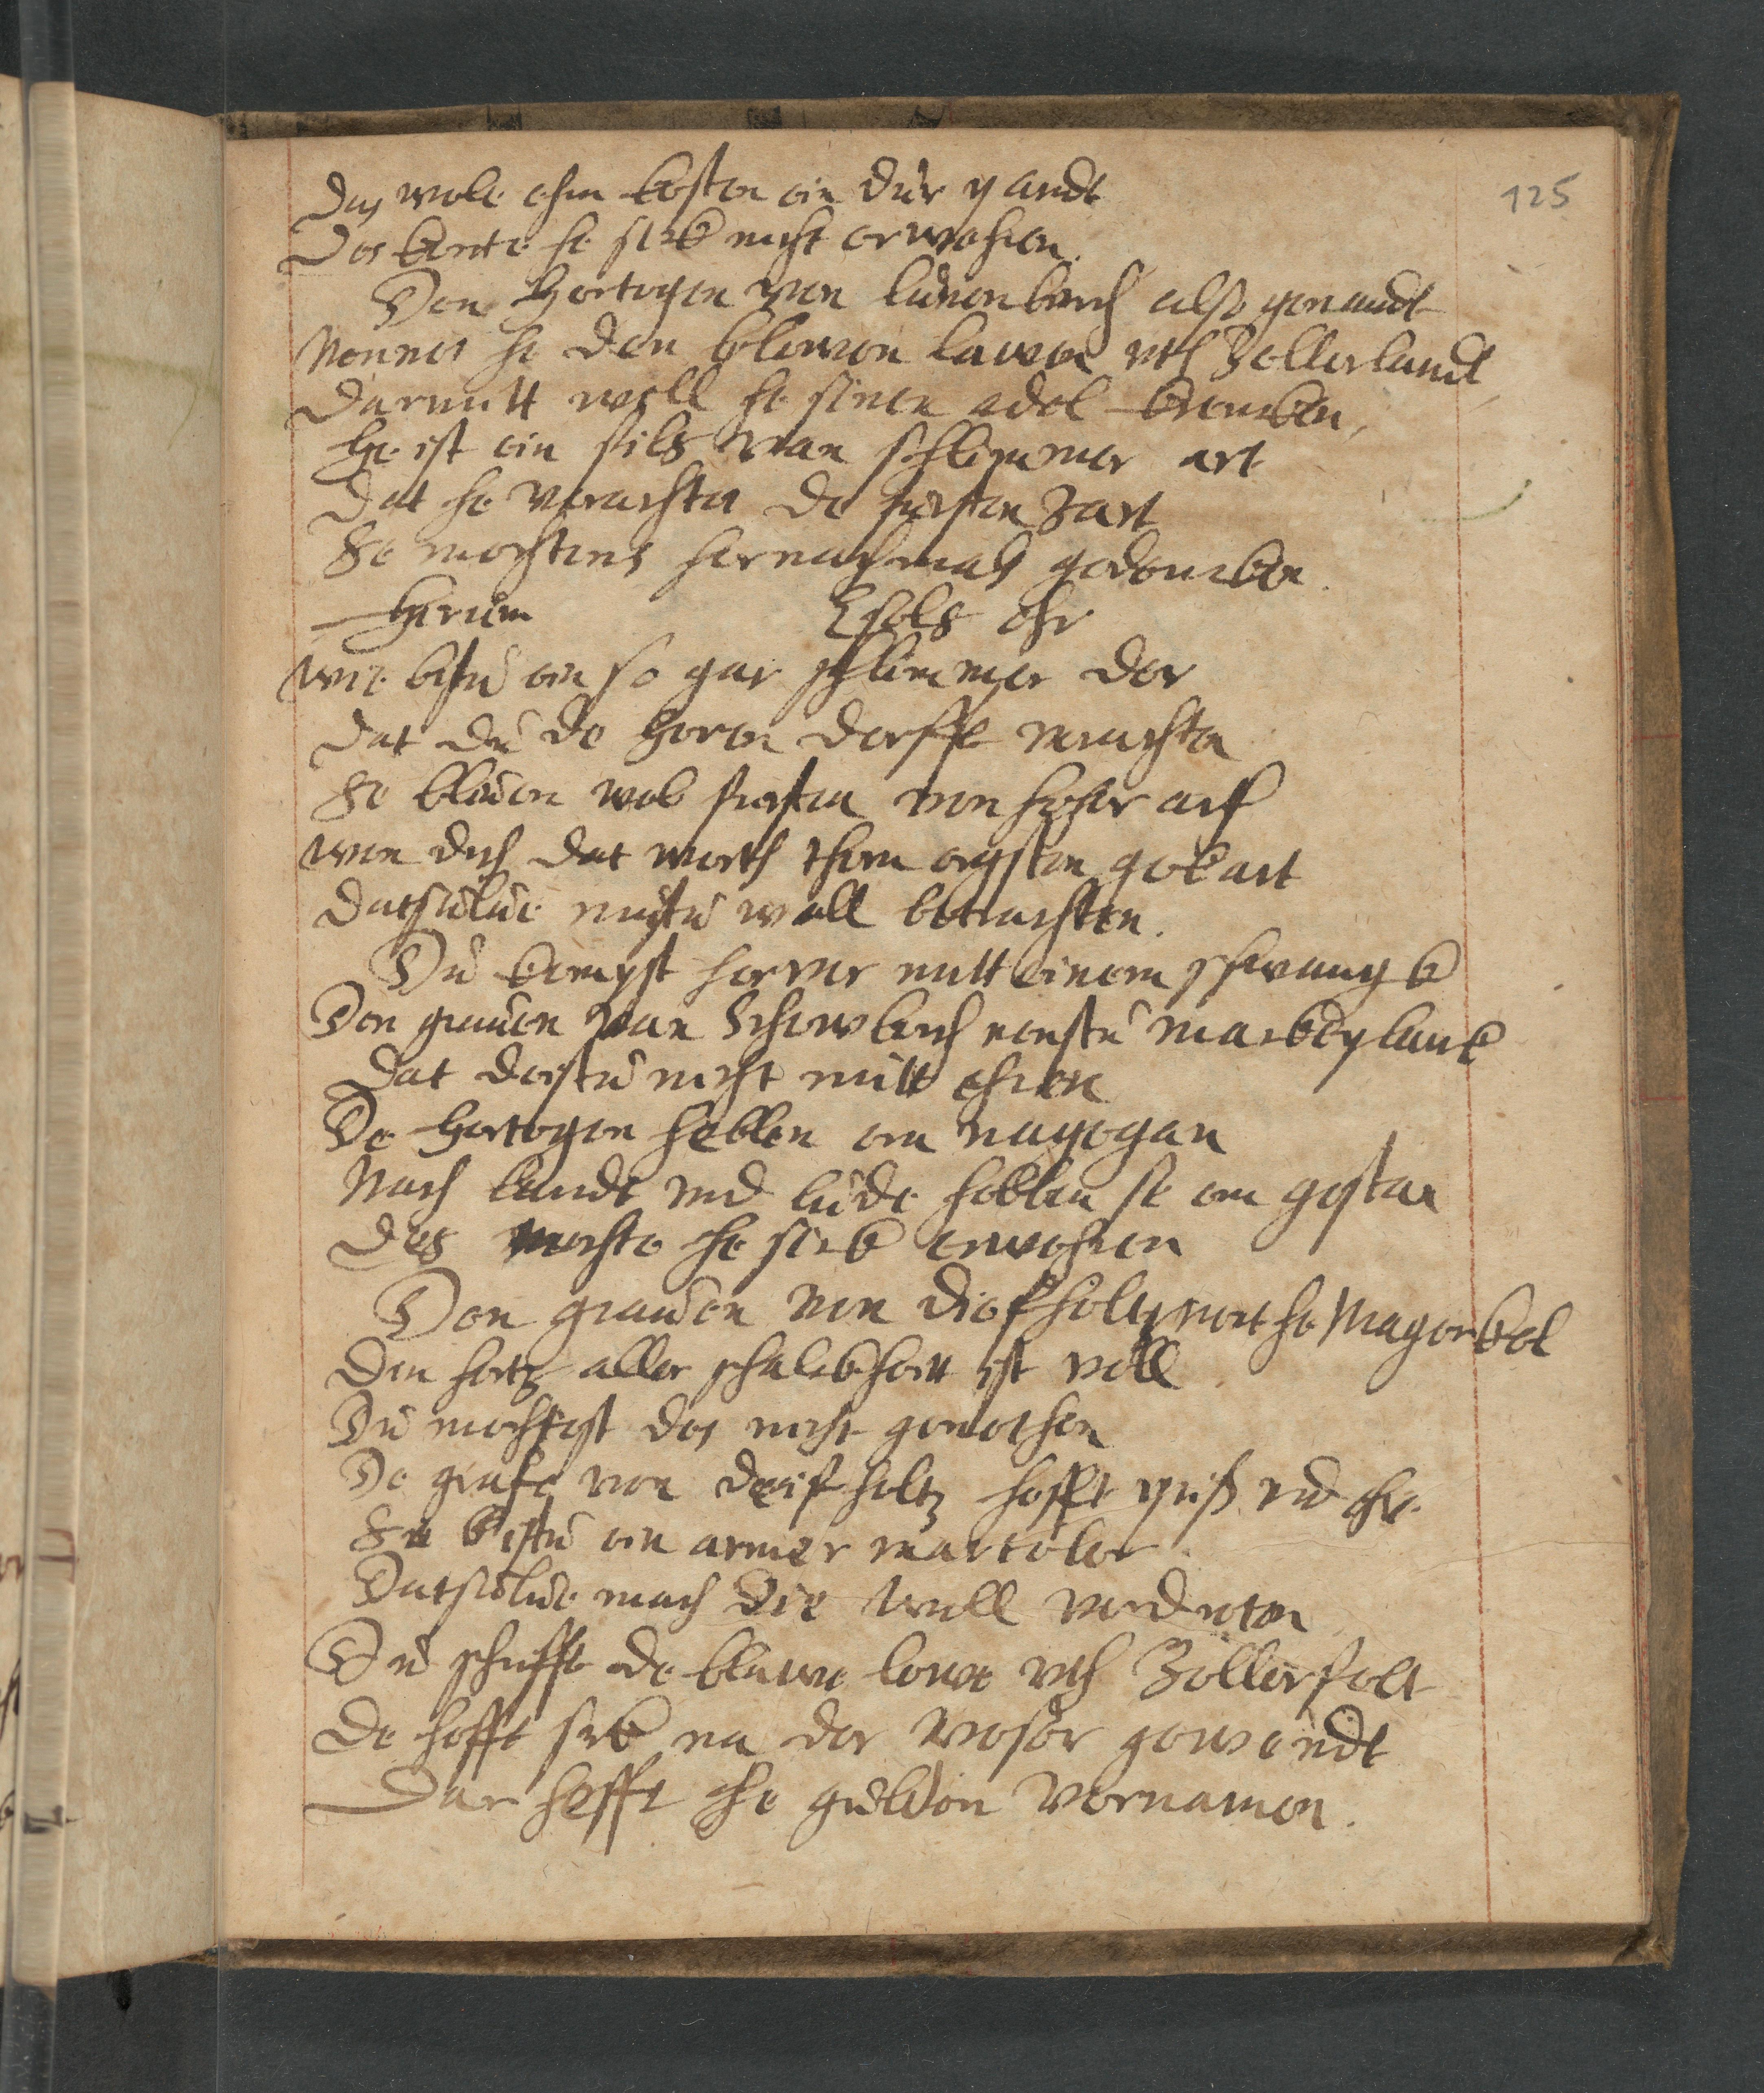 125
Das wole ehm kosten ein dur pandt
Des konte he sick nicht erwehren.
Den Hertogen von lunenburch also genandt
Nennet he den blawen lawen uth Zellerlandt
Darmitt will he sinen adel krencken,
He ist ein filz van schlimmer art
Dat he verachtet de fursten zart
Se mochtens hernachmals gedencken.
Herum Esels Ohr
Wie bistu ein so gar schlimmer dor
Dat du de heren dorffst verachten
Se bliven wol fursten von hoher art
Wen dich dat wortt thom ergsten gekart
Datsulve mustu woll betrachten.
Du kompst hervor mitt einem schwanck
Den graven van Schowborch nenstu Marckeplanck
Dat deistu nicht mitt ehren
De Hertogen hebben em nagogan
Nach lande und lude hebben se em gestan
Des mochte he sick erwehren
Den graven von Diefholtz nent he Magerkol
Din hertz aller schalckheitt ist voll
Du mochtest des nicht geneten
De grafe von Deifholtz hefft priß und ehr
So bistu ein armer marteler
Datsulve mach die woll verdreten
Du schuffst de blawe lowe uth Zellerfelt
De hefft sick na der Weser gewendt
Dar hefft he gulden vornamen.